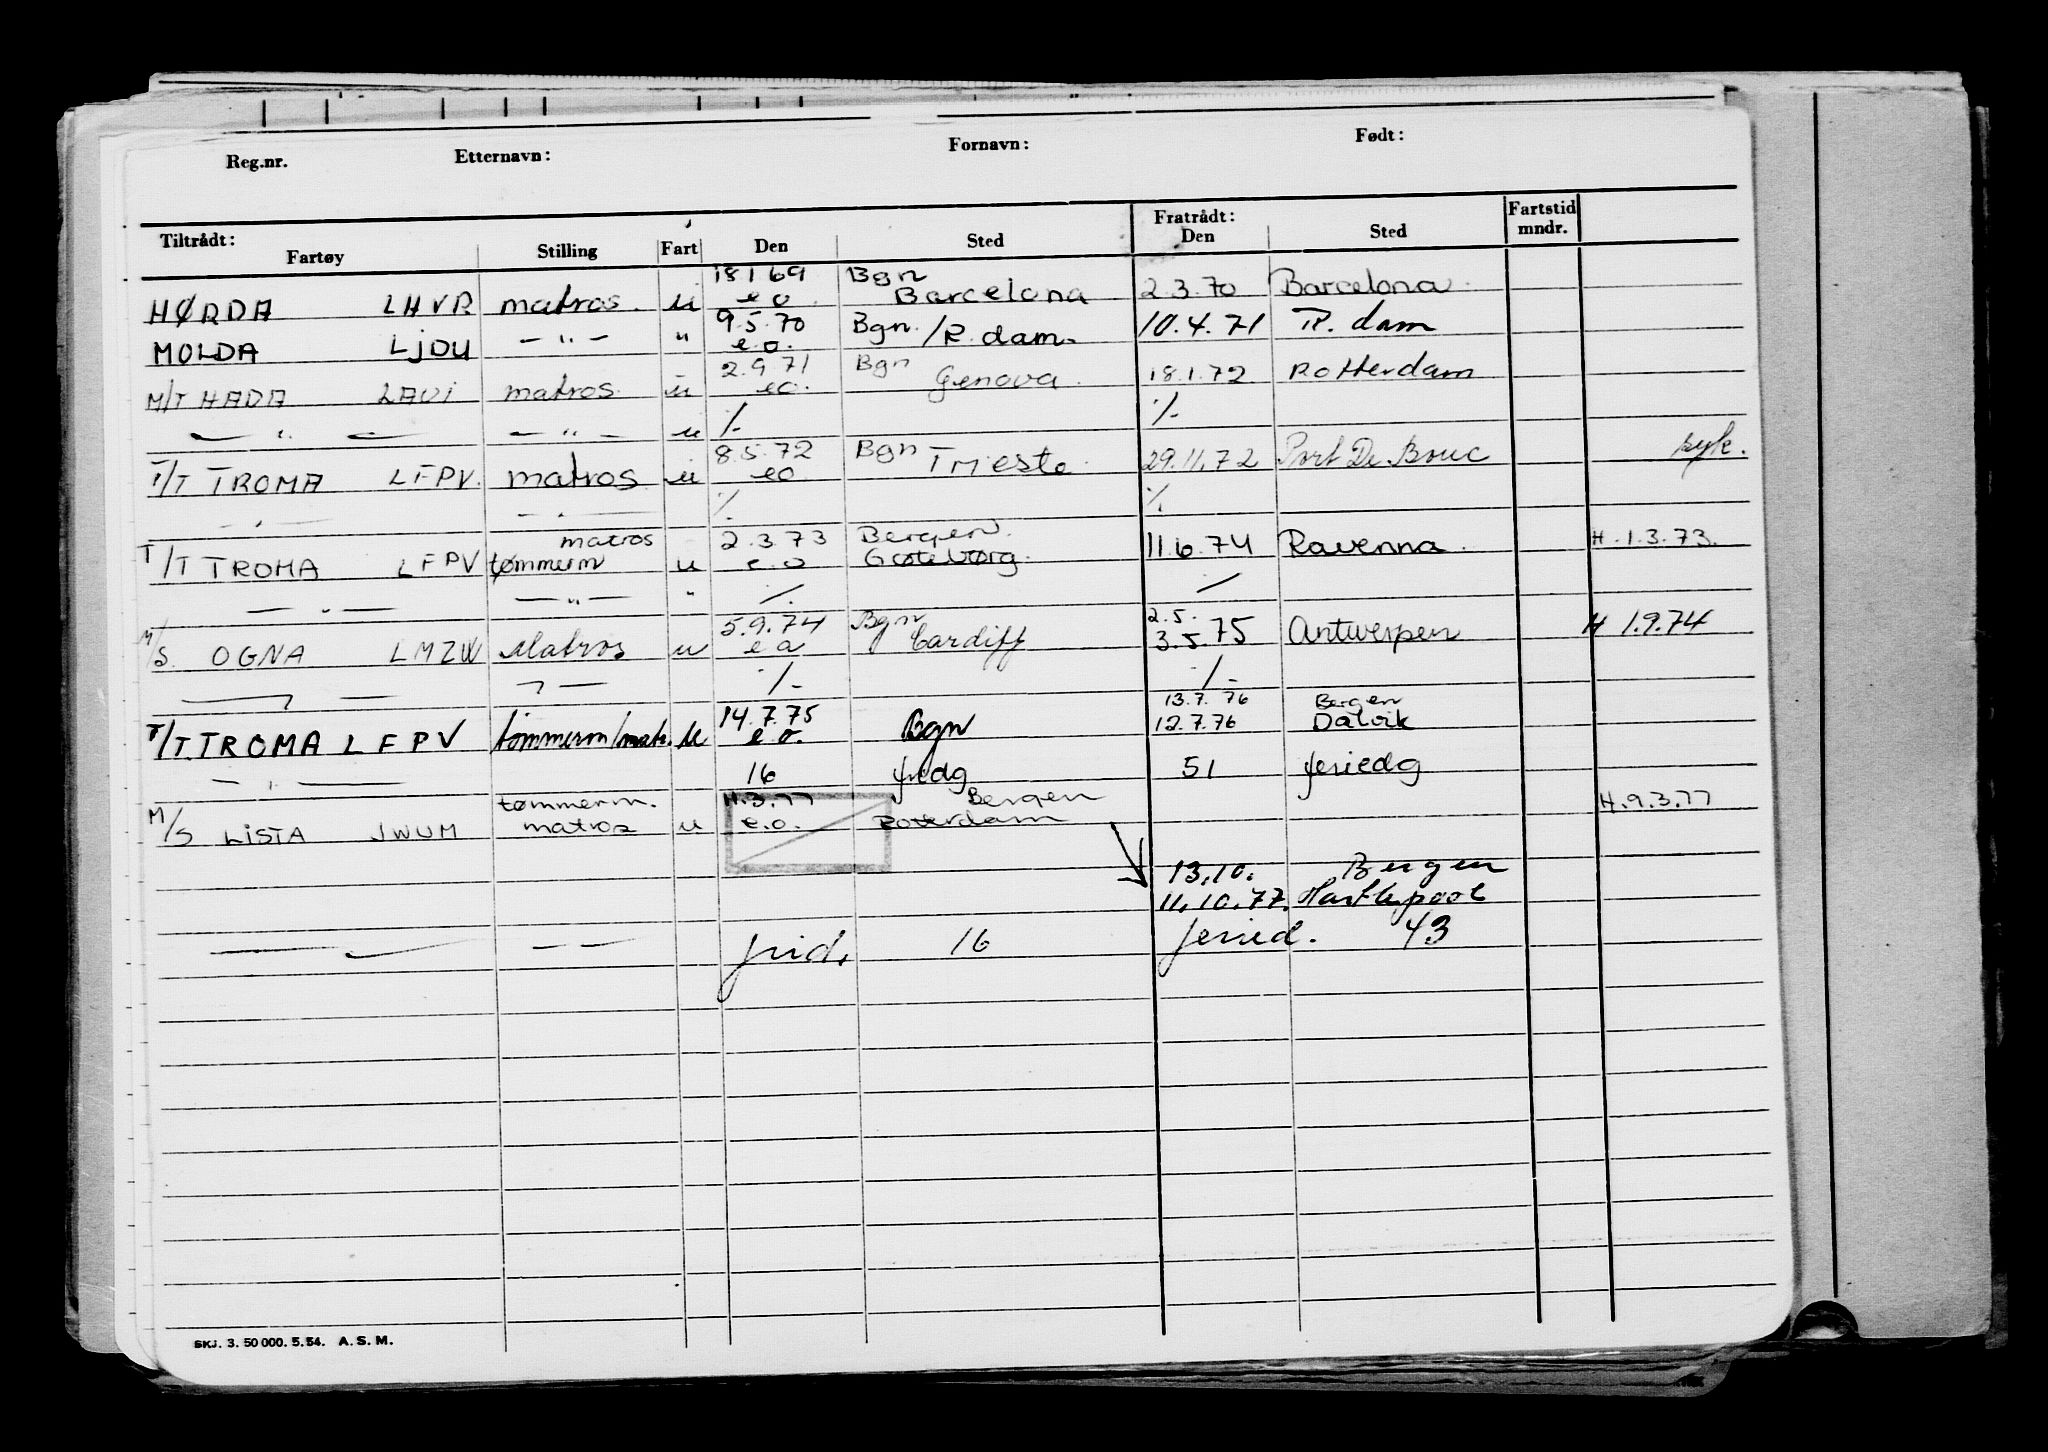 Reg.nr. Etternavn: Fornavn: Født:
Tiltrådt: Fratrådt: Fartstid
Fartøy Stilling Fart Den Sted Den Sted mndr.
18 1 69 Bgn
HØRDA LHVR matros. u e o Barcelona 2.3.70 Barcelona.
9.5.70 Bgn.
MOLDA LJDU — " — " e.o. /R.dam. 10.4.71 R.dam
2.9.71 Bgn
M/T HADA LAVI matros. u eo. Genova. 18.1.72 Rotterdam
— " — — " — u ./. ./.
8.5.72 Bgn
T/T TROMA LFPV. matros u eo. Trieste. 29.11.72 Port De Bouc syk.
— " — — " — ./. ./.
matros 2.3.73 Bergen.
T/T TROMA LFPV tømmerm u e.o Gøteborg. 11.6.74 Ravenna. H.1.3.73.
— " — — " — " ./. /
5.9.74 Bgn 2.5.
M/S. OGNA LMZW Matros u e o Cardiff 3.5.75 Antwerpen H 1.9.74
— " — — " — ./. ./.
14.7.75 13.7.76 Bergen
T/T. TROMA LFPV tømmerm/matr. u e.o. Bgn 12.7.76 Dalvik
— " — 16 fridg 51 feriedg
tømmerm. 11.3.77 Bergen H.9.3.77
M/S LISTA JWUM matros u e.o. Rotterdam
13.10. Bergen
11.10.77. Hartlepool
— " — — — frid. 16 feried. 43
SKJ. 3. 50 000. 5.54. A. S. M.